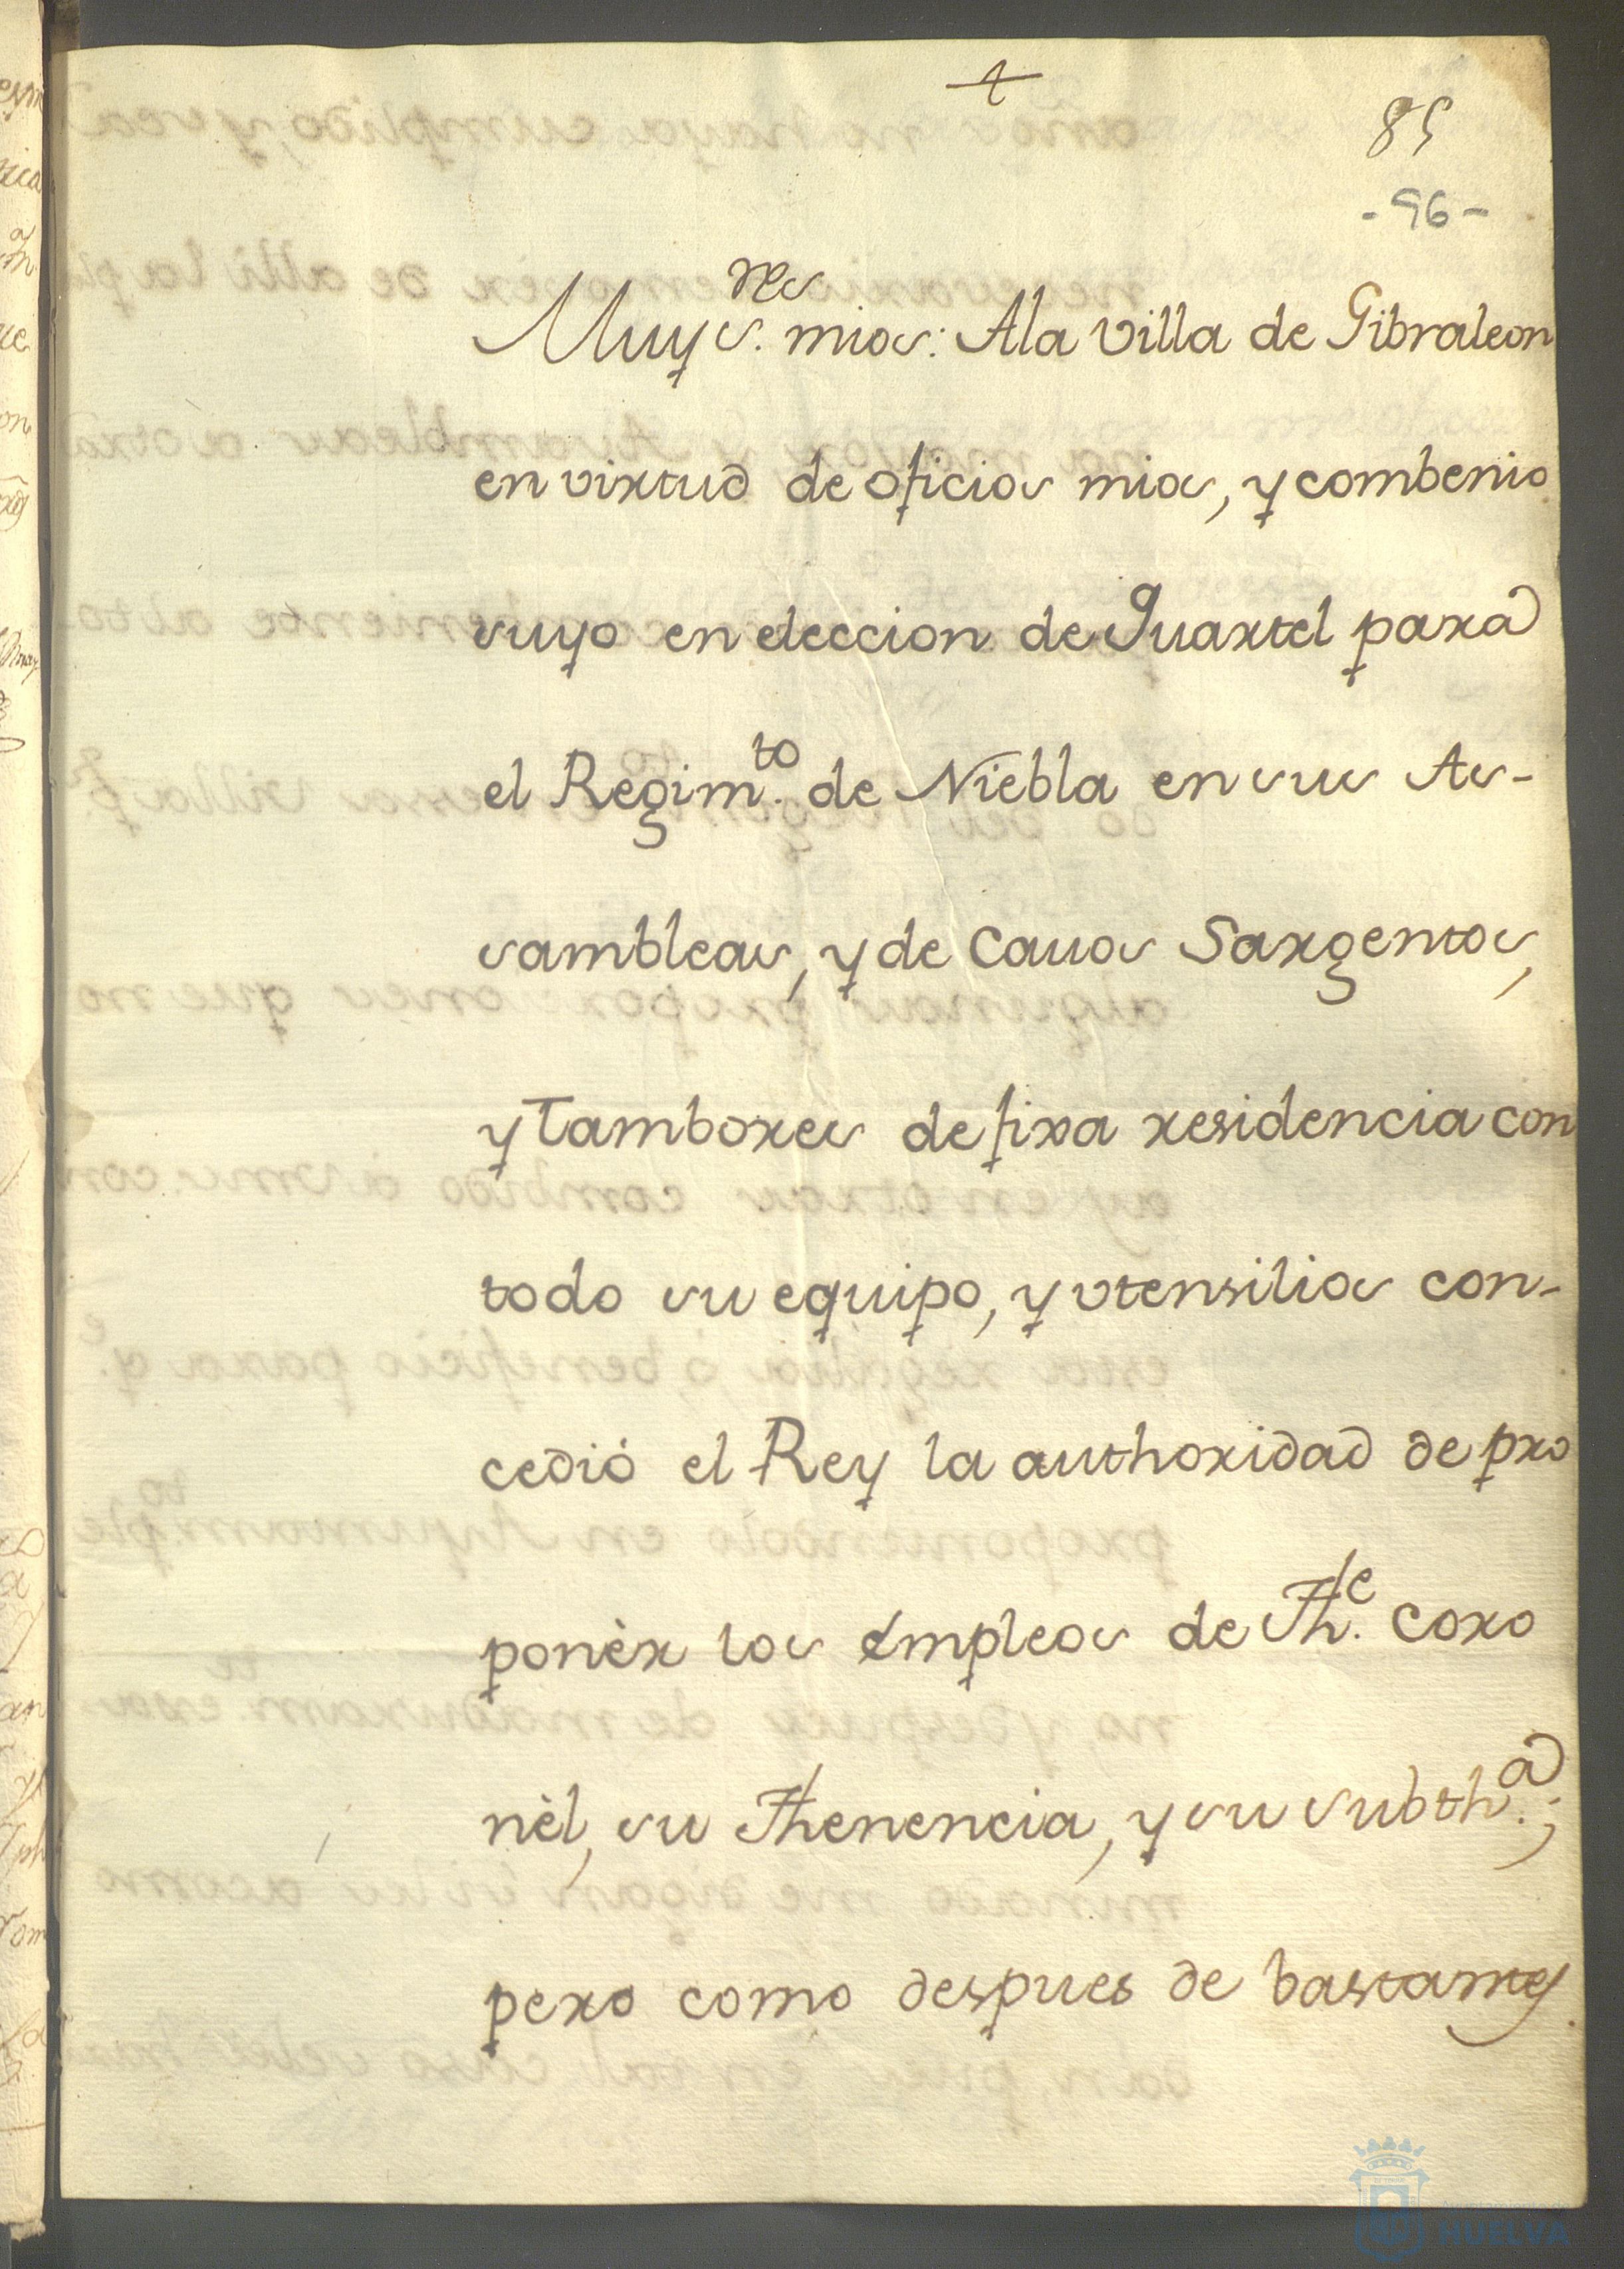 +
85
-96-
Muy s.res mios: Ala villa de Gibraleon
en virtud de oficios mios, y combenio
suyo en eleccion de Quartel para
el Regim.to de Niebla en sus As-
sambleas, y de Cauos Sargentos,
y Tambores de fixa residencia con
todo su equipo, y vtensilios con-
cedió el Rey la authoridad de pro
ponèr los empleos de Th.e Coro
nèl, su Thenencia, y su subth.a;
pero como despues de bastantes
HUELVA